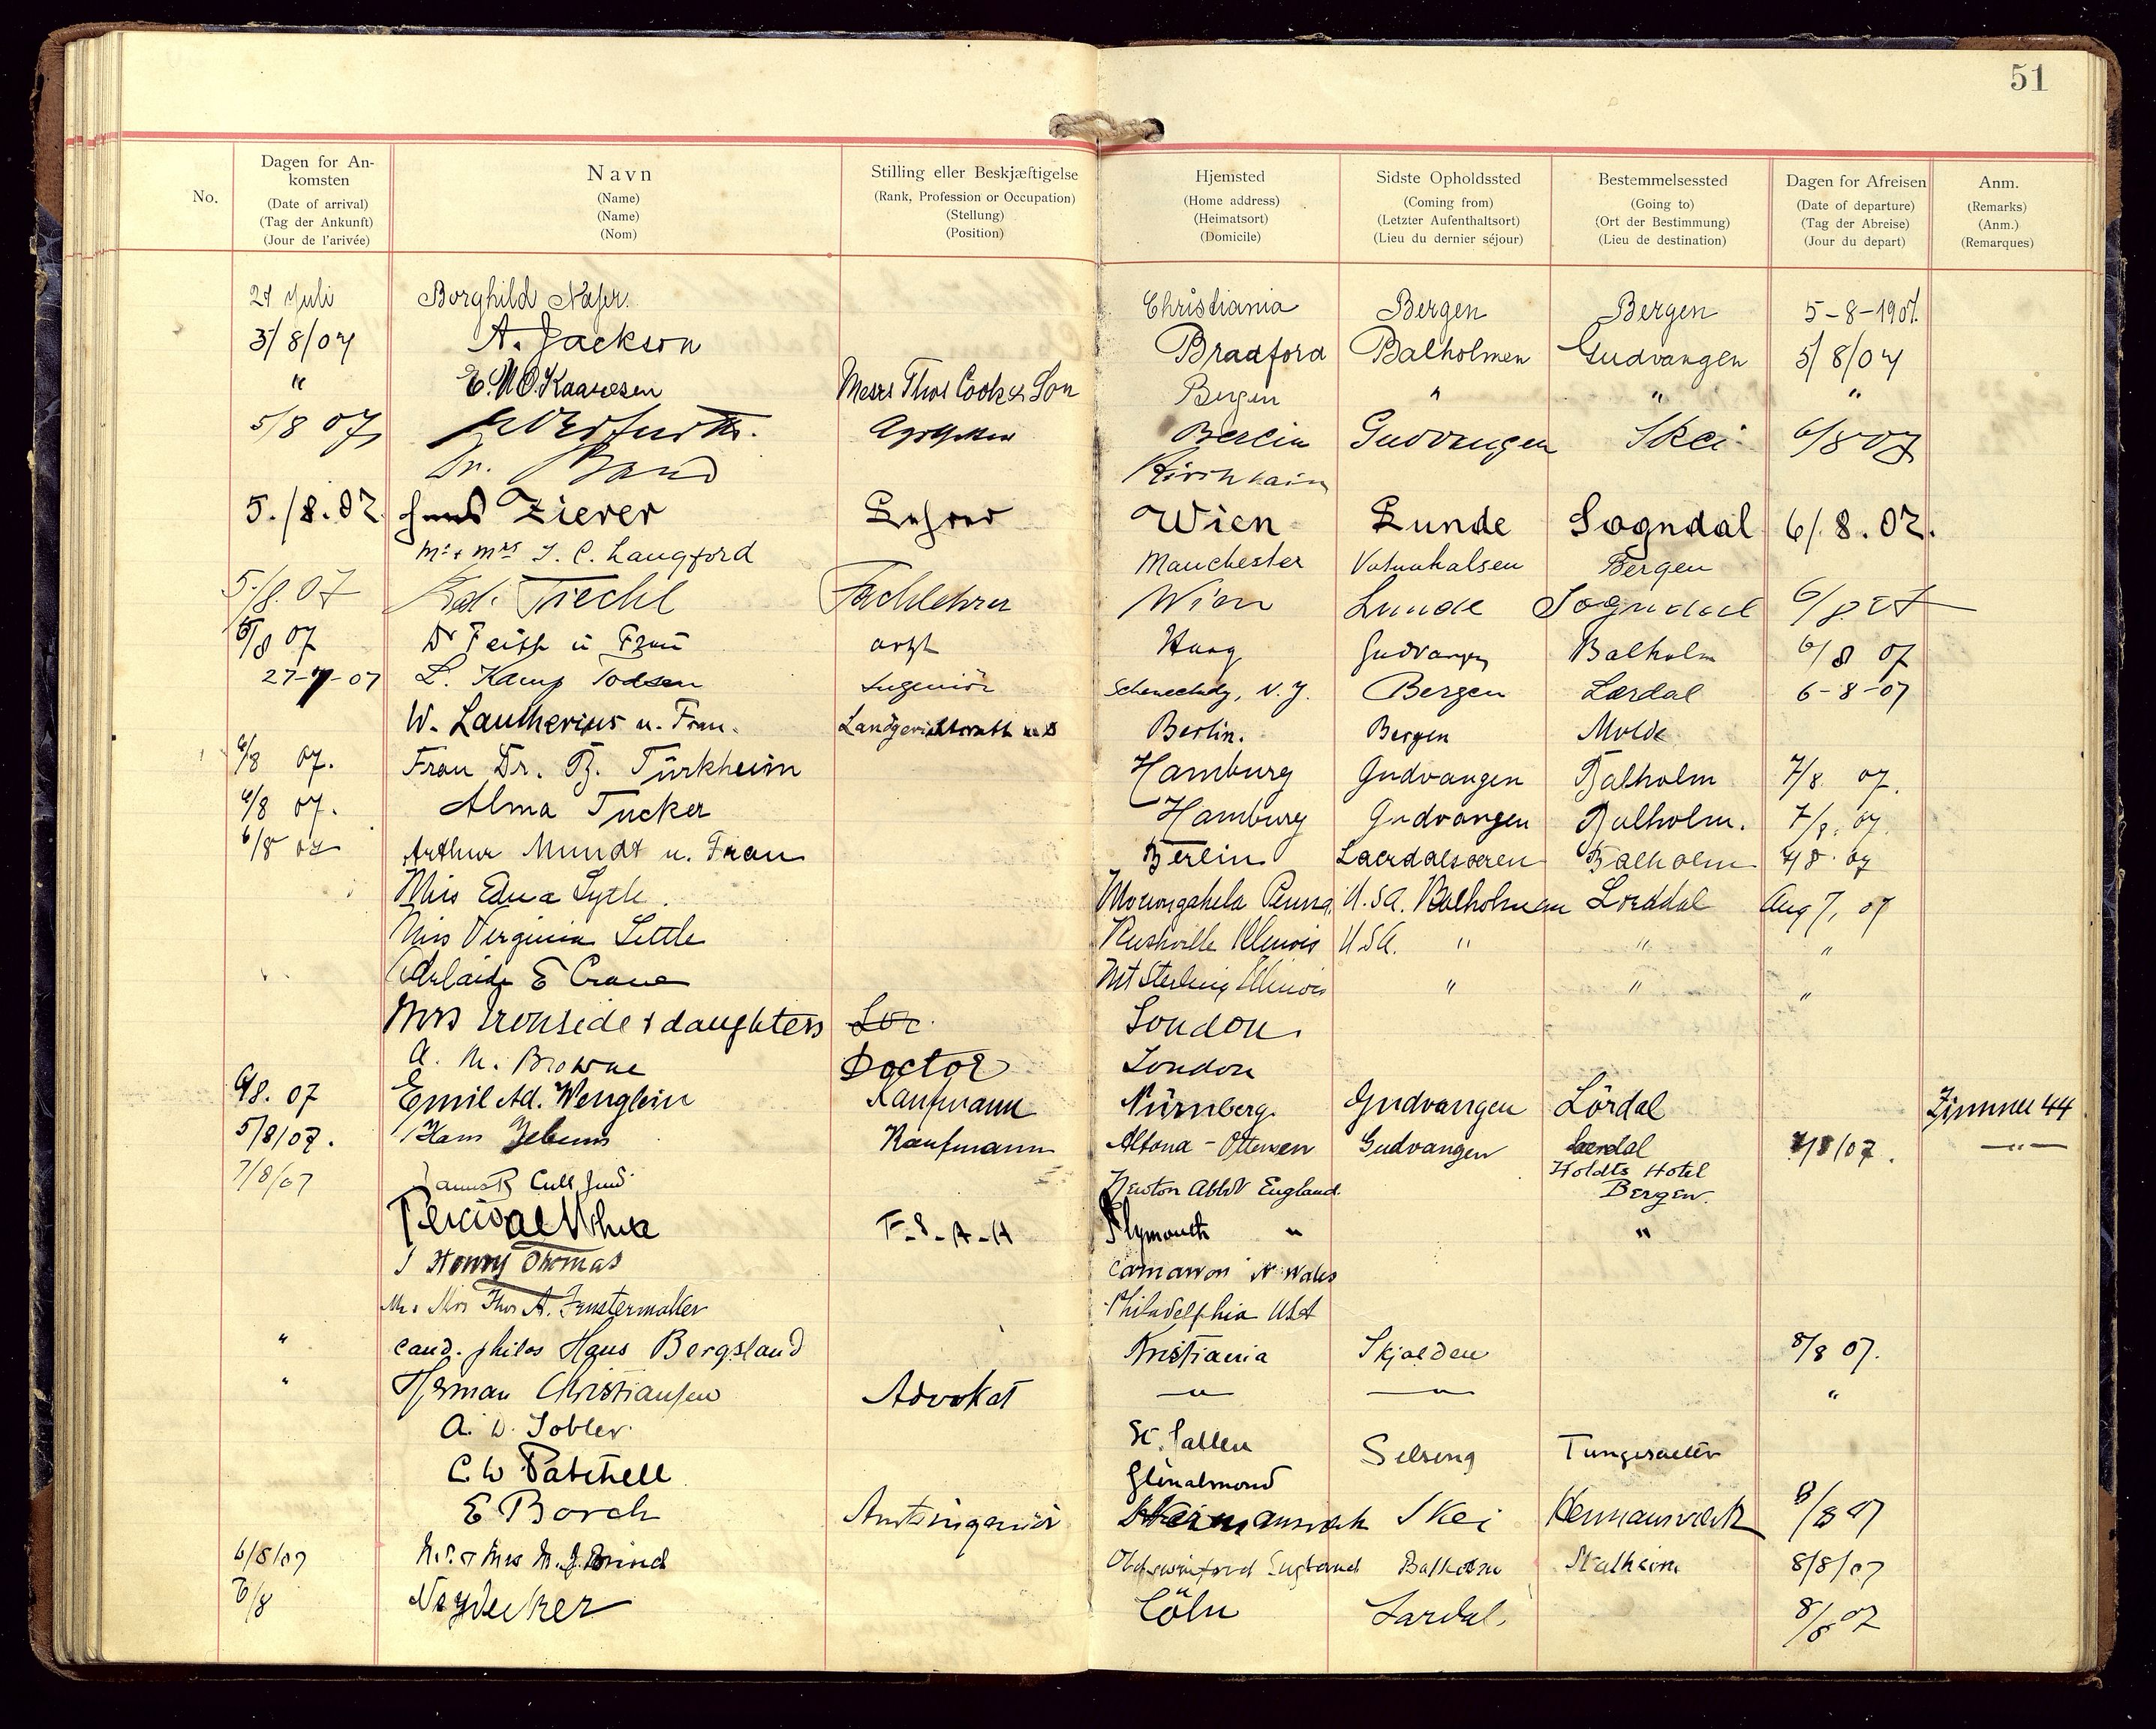 51
No. Dagen for Ankomsten (Date of arrival) (Tag der Ankunft) (Jour de l'arivée) Navn (Name) (Name) (Nom) Stilling eller Beskjæftigelse (Rank, Profession or Occupation) (Stellung) (Position) Hjemsted (Home address) (Heimatsort) (Domicile) Sidste Opholdssted (Coming from) (Letzter Aufenthaltsort) (Lieu du dernier séjour) Bestemmelsessted (Going to) (Ort der Bestimmung) (Lieu de destination) Dagen for Afreisen (Date of departure) (Tag der Abreise) (Jour du depart) Anm. (Remarks) (Anm.) (Remarques)
Juli Borghild Christiania Bergen Bergen 5-8-1907.
3/8/07 A. Jackson Bradford Balholmen Gudvangen 5/8/07
" Messrs Thos Cook & Son Bergen " " "
5/8 07 Berlin Gudvangen Skei 6/8 07
Dr. Kirchhain
5./8.07. Hans Zierer Lehrer Wien Lunde Sogndal 6/8.07.
Mr & Mrs J. C. Langford Manchester Vatnahalsen Bergen
5./8.07 Tiechl Fachlehrer Wien Lunde Sogndal 6/8 07
5/8 07 Dr u Frau arzt Haag Gudvangen Balholm 6/8 07
27-7-07 L. Kamp Todsen Ingeniör Schenectady, N. Y. Bergen Lærdal 6-8-07
W. u. Frau. Berlin. Bergen Molde
6/8 07. Frau Dr. B. Türkheim Hamburg Gudvangen Balholm 7/8. 07.
6/8 07. Alma Tucker Hamburg Gudvangen Balholm. 7/8. 07.
6/8 07 Arthur Mundt u. Frau Berlin Laerdalsoeren Balholm 7/8. 07
Miss Edna Lytle. Monongahela Penna. U.S.A. Balholmen Lærdal Aug 7, 07
Miss Virginia Little Rushville Illinois U.S.A. " " "
Adelaide E Crane Mt Sterling Illinois " " "
Mrs Ironside & daughters London.
A. M. Browne Doctor London
6/8. 07 Emil Ad. Wenglein Kaufmann Nürnberg. Gudvangen Lördal Zimmer 44
5/8/07. Hans Kaufmann Altona - Ottensen Gudvangen Laerdal 7/8/07. —"—
7/8/07 Newton Abbot England. Holdts Hotel
Bergen.
Percival Plymouth " "
J Henry Thomas Carnarvon N Wales
Mr & Mrs Thos A. Fenstermaker Philadelphia USA
" cand. philos Hans Bergsland Kristiania Skjolden 8/8 07.
" Herman Christiansen Advokat —"— —"— "
A. D. Tobler. St. Gallen Selseng
C W Patchell Glenalmond
E Borch Amtsingeniør Skei 8/8 07
6/8/07 Mr & Mrs England Balholm Stalheim 8/8/07
6/8 Neydecker Cöln Lardal. 8/8 07